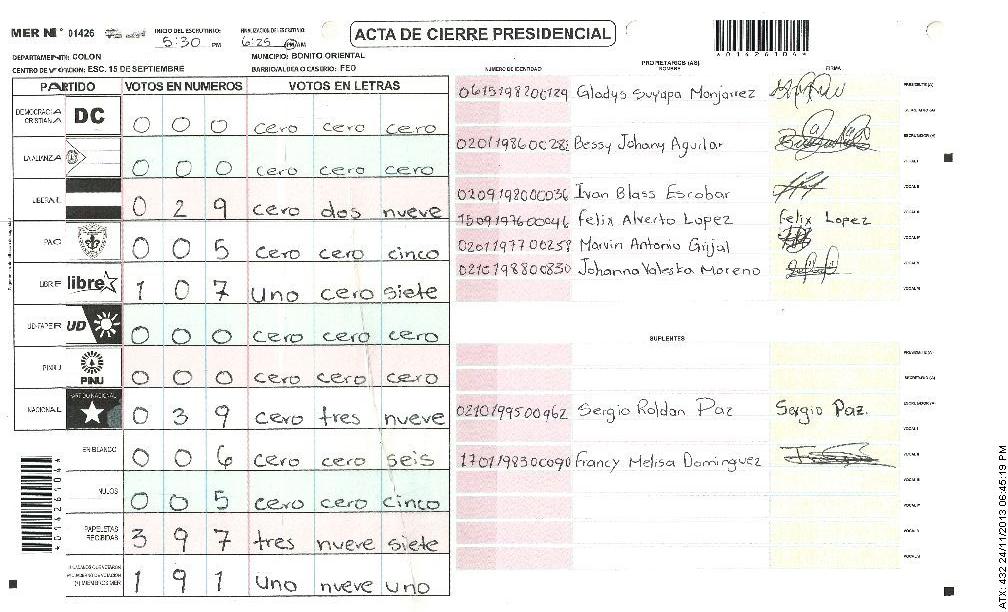 MER Nº 01426
INICIO DEL ESCRUTINIO:
5:30 PM
FINALIZACION DEL ESCRUTINIO:
6:25 PM AM
ACTA DE CIERRE PRESIDENCIAL
DEPARTAMENTO: COLON
MUNICIPIO: BONITO ORIENTAL
CENTRO DE VOTACION: ESC. 15 DE SEPTIEMBRE
BARRIO/ALDEA O CASERIO: FEO
PARTIDO VOTOS EN NUMEROS VOTOS EN LETRAS
DEMOCRACIA CRISTIANA DC 0 0 0 cero cero cero
LA ALIANZA 0 0 0 cero cero cero
LIBERAL 0 2 9 cero dos nueve
PAC 0 0 5 cero cero cinco
LIBRE libre 1 0 7 uno cero siete
UD-FAPER UD 0 0 0 cero cero cero
PINU PINU 0 0 0 cero cero cero
NACIONAL PARTIDO NACIONAL 0 3 9 cero tres nueve
EN BLANCO 0 0 6 cero cero seis
NULOS 0 0 5 cero cero cinco
PAPELETAS RECIBIDAS 3 9 7 tres nueve siete
1 9 1 uno nueve uno
PROPIETARIOS (AS)
NUMERO DE IDENTIDAD NOMBRE FIRMA
0615198200129 Gladys Suyapa Monjarrez PRESIDENTE (A)
SECRETARIO (A)
Bessy Johany Aguilar ESCRUTADOR (A)
VOCAL I
0209198000036 Ivan Blass Escobar VOCAL II
1509197600046 Felix Alverto Lopez Felix Lopez VOCAL III
0201197700259 Marvin Antonio Grijal VOCAL IV
0210198800830 Johanna Valeska Moreno VOCAL V
VOCAL VI
SUPLENTES
PRESIDENTE (A)
SECRETARIO (A)
0210199500962 Sergio Roldan Paz Sergio Paz. ESCRUTADOR (A)
VOCAL I
1701198300090 Francy Melisa Dominguez VOCAL II
VOCAL III
VOCAL IV
VOCAL V
VOCAL VI
ATX: 432 24/11/2013 06:45:19 PM